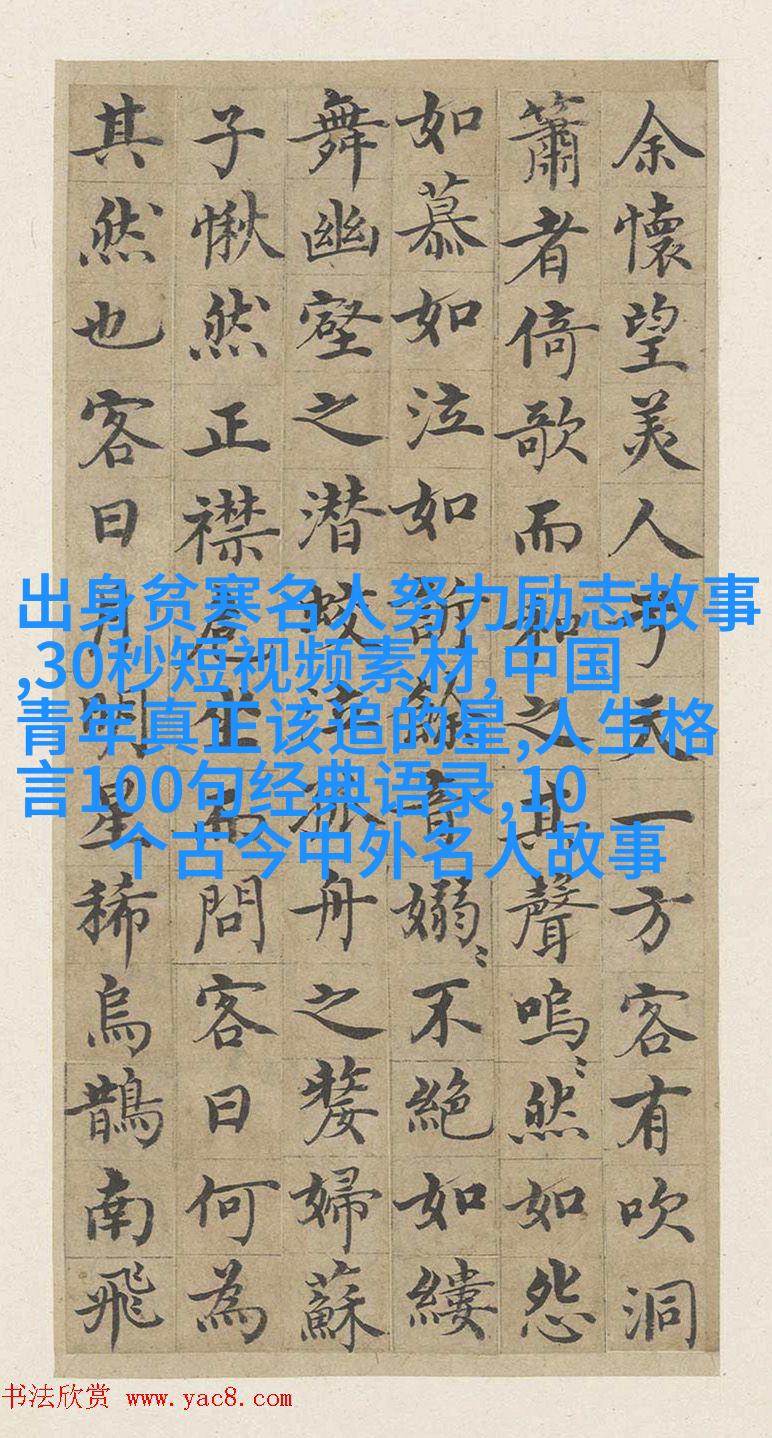 余懷望美人兮天一方客有吹洞
簫者倚歌而和之其聲嗚〻然如怨
如慕如泣如訴餘音嫋〻不絕如縷
舞幽壑之潛蛟泣孤舟之嫠婦蘇
子愀然正襟危坐而問客曰何為
其然也客曰月明星稀烏鵲南飛
出身贫寒名人努力励志故事
,30秒短视频素材,中国
青年真正该追的星,人生格
言100句经典语录,10
个古今中外名人故事
书法欣赏 www.yac8.com